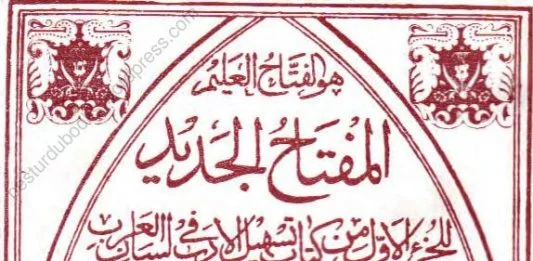 هو الفتاح العليم
المفتاح الجديد
للجزء الاول من كتاب تسهيل الادب في لسان العرب
besturdubooks.wordpress.com